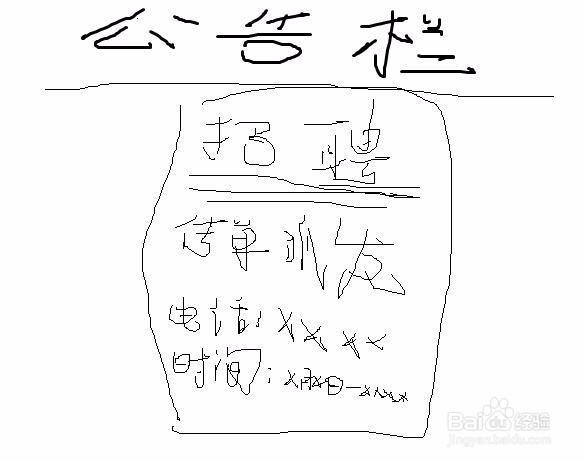 公告栏
招聘
传单派发
电话:xxxx
时间:x月x日-xxxx
Baidu经验
jingyan.baidu.com